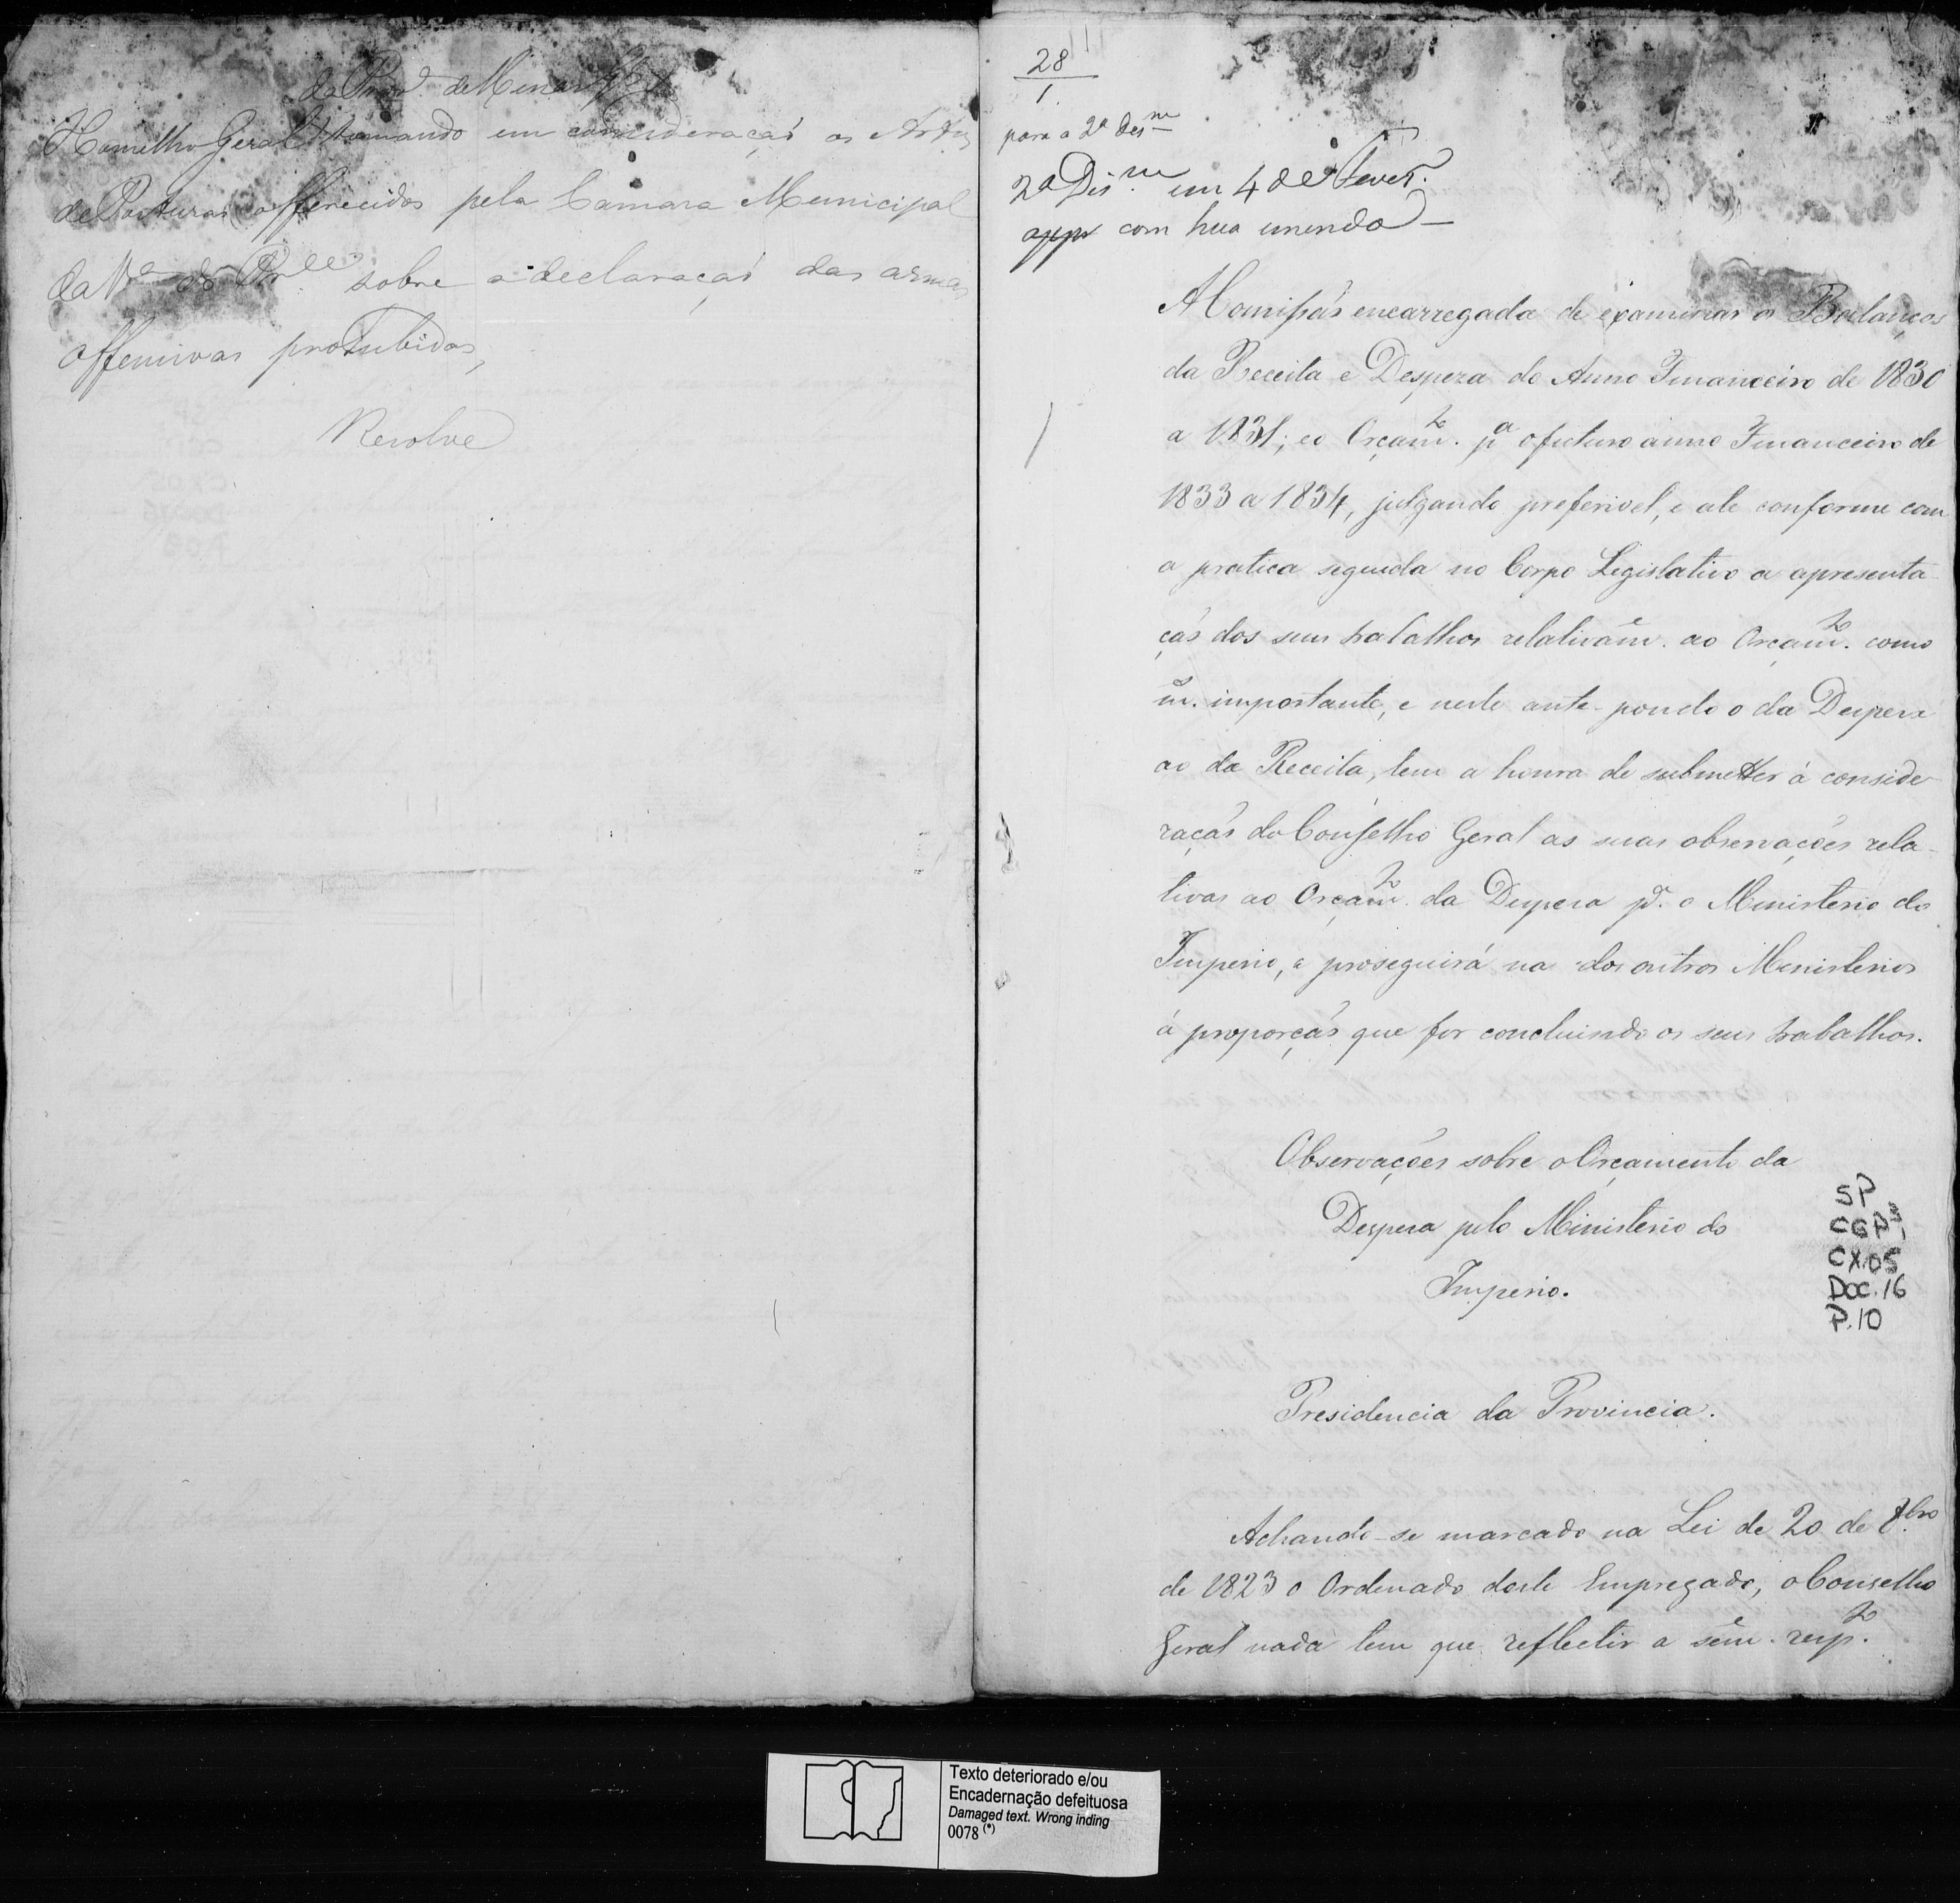 da Prov.ª de Minas
O Conselho Geral tomando em consideraçaõ os Art.os
de Posturas offerecidos pela Camara Municipal
da V.ª do P. sobre a declaraçaõ das armas
offensivas prohibidas,
Resolve
28
1
para a 2ª Dism
2ª Dis.m em 4 de Fever.
app com hua emenda
A Comissaõ encarregada de examinar os Balanços
da Receita e Despeza do Anno Financeiro de 1830
a 1831; e o Orçam.to p.ª o futuro anno Financeiro de
1833 a 1834, julgando preferivel, e até conforme com
a pratica seguida no Corpo Legislativo a apresenta-
çaõ dos seus trabalhos relativam.e ao Orçam.to como
m. importante, e neste ante-pondo o da Despeza
ao da Receita, tem a honra de submetter á conside-
raçaõ do Conselho Geral as suas observações rela-
tivas ao Orçam.to da Despeza p.ª o Ministerio do
Imperio, e proseguirá na dos outros Ministerios
á proporçaõ que for concluindo os seus trabalhos.
Observações sobre o Orçamento da
Despeza pelo Ministerio do
Imperio.
SP
CGP¹
CX.05
DOC.16
P.10
Presidencia da Provincia.
Achando-se marcado na Lei de 20 de 8bro
de 1823 o Ordenado deste Empregado, o Conselho
Geral nada tem que reflectir a sem.e resp.to
Texto deteriorado e/ou
Encadernação defeituosa
Damaged text. Wrong inding
0078 (*)